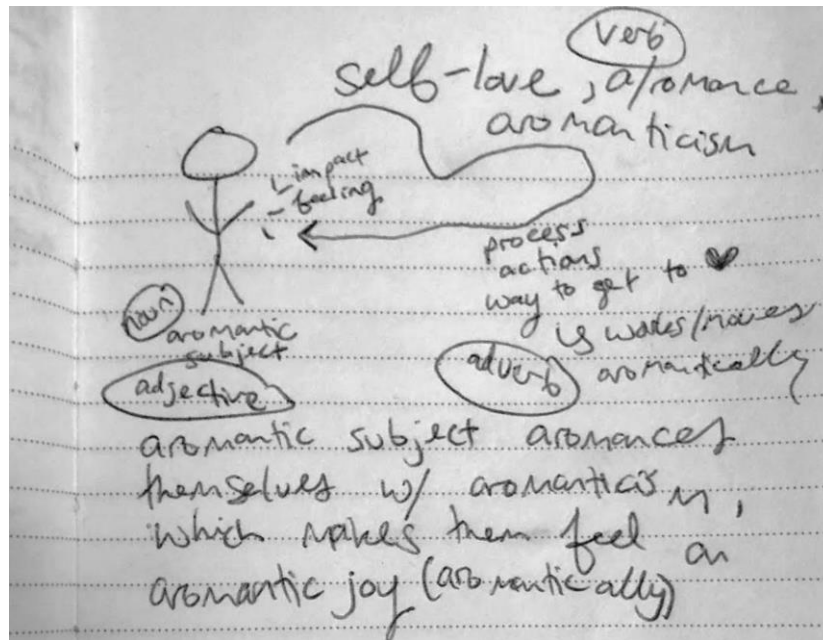 verb
self-love, a/romance,
aromanticism
- impact
- feeling
-
process
actions
way to get to ♥
↳ works/moves
aromantically
noun
aromantic
subject
adjective
adverb
aromantic subject aromances
themselves w/ aromanticism,
which makes them feel an
aromantic joy (aromantically)